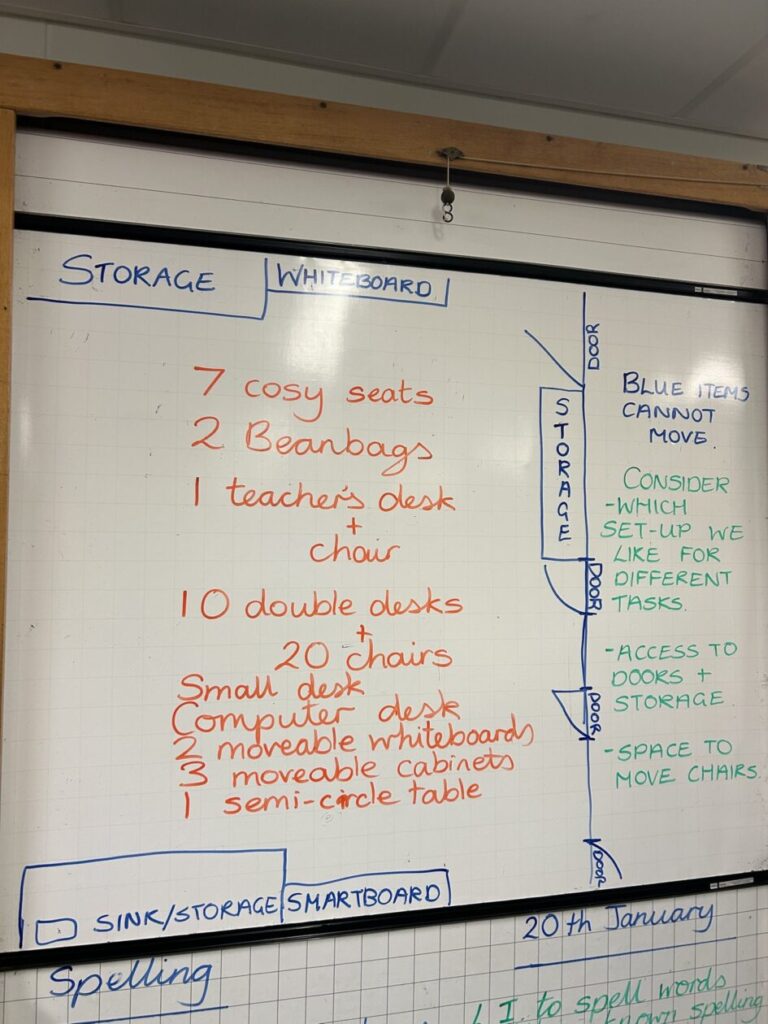 STORAGE
WHITEBOARD
DOOR
7 cosy seats
2 Beanbags
1 teacher's desk
+
chair
10 double desks
+
20 chairs
Small desk
Computer desk
2 moveable whiteboards
3 moveable cabinets
1 semi-circle table
STORAGE
DOOR
DOOR
DOOR
BLUE ITEMS
CANNOT
MOVE.
CONSIDER
-WHICH
SET-UP WE
LIKE FOR
DIFFERENT
TASKS.
-ACCESS TO
DOORS +
STORAGE
-SPACE TO
MOVE CHAIRS.
SINK/STORAGE
SMARTBOARD
20th January
Spelling
L I. to spell words
known spelling